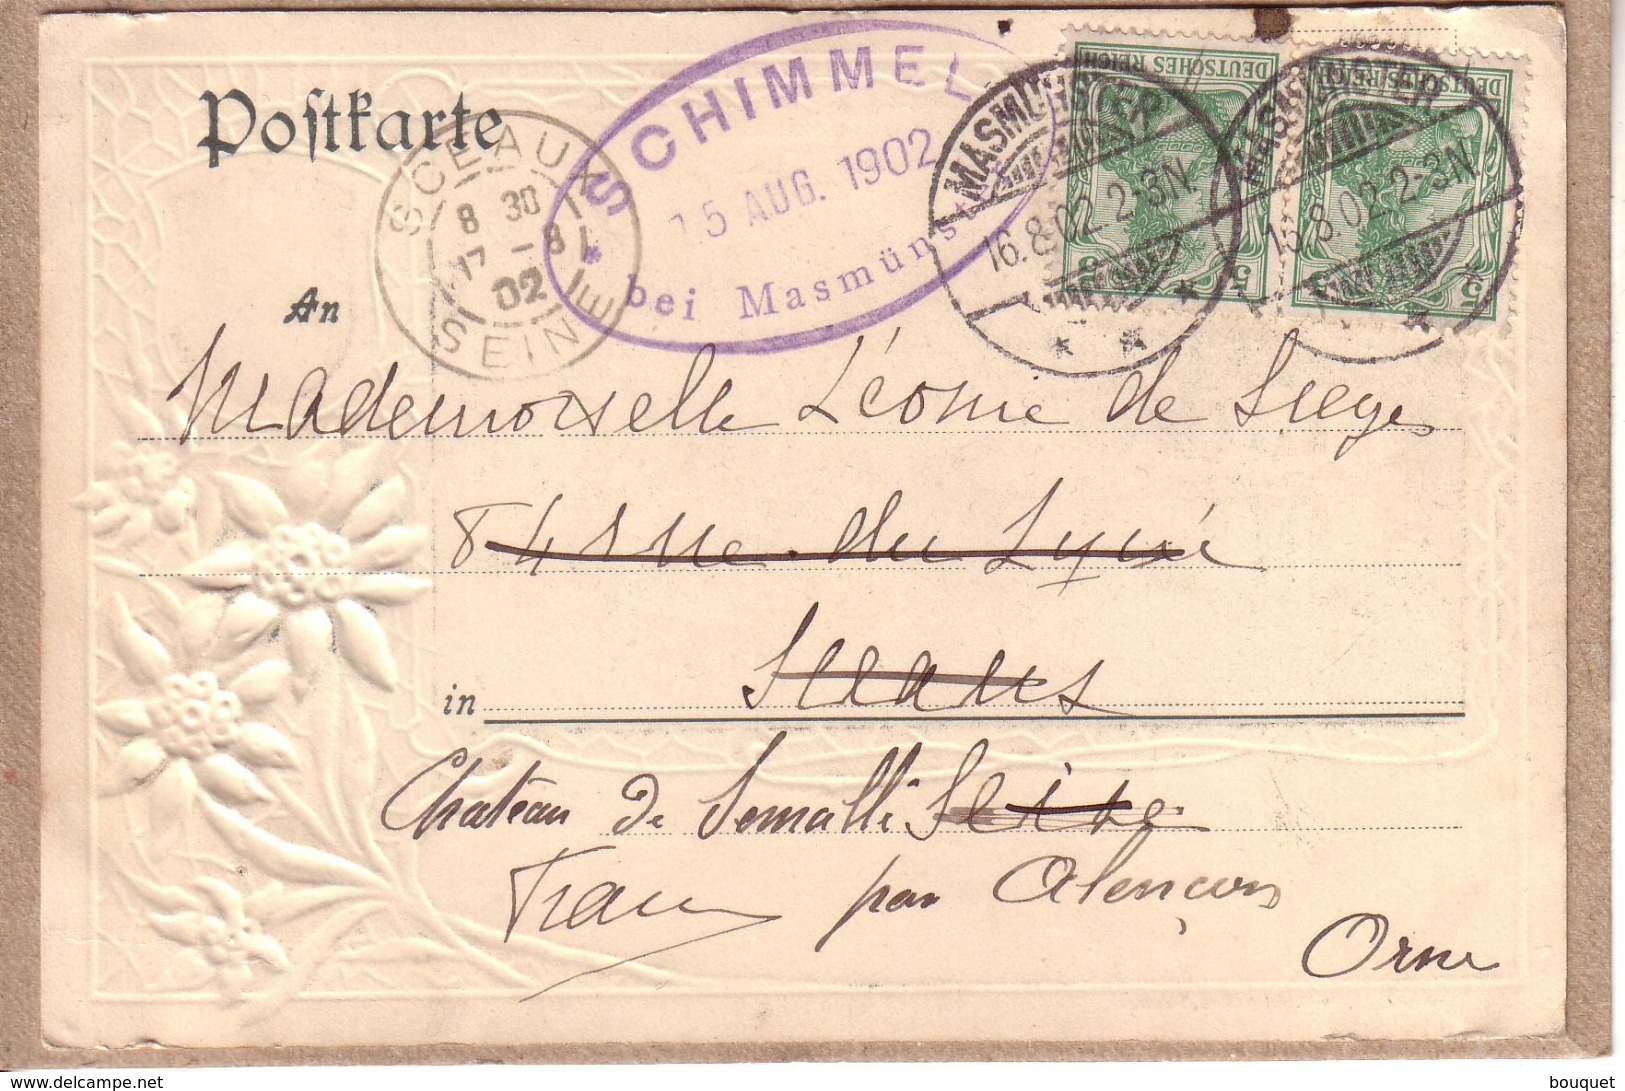 Postkarte
SCHIMMEL
15 AUG. 1902
* bei Masmünster *
SCEAUX
8 30
17 -8
02
SEINE
DEUTSCHES REICH
DEUTSCHES REICH
5 5
5 5
MASMÜNSTER
16.8.02 2-3N.
MASMÜNSTER
16.8.02 2-3N.
An
Mademoiselle Léonie de
84 rue du Lycée
in Sceaux
Château de Semallé Seine
France par Alençon
Orne
www.delcampe.net
bouquet